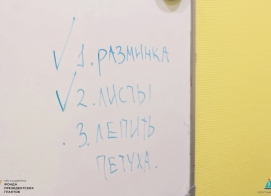 ✓ 1. РАЗМИНКА
✓ 2. ЛИСТЫ
. 3. ЛЕПИТЬ
ПЕТУХА.
ФОНДА
ПРЕЗИДЕНТСКИХ
ГРАНТОВ